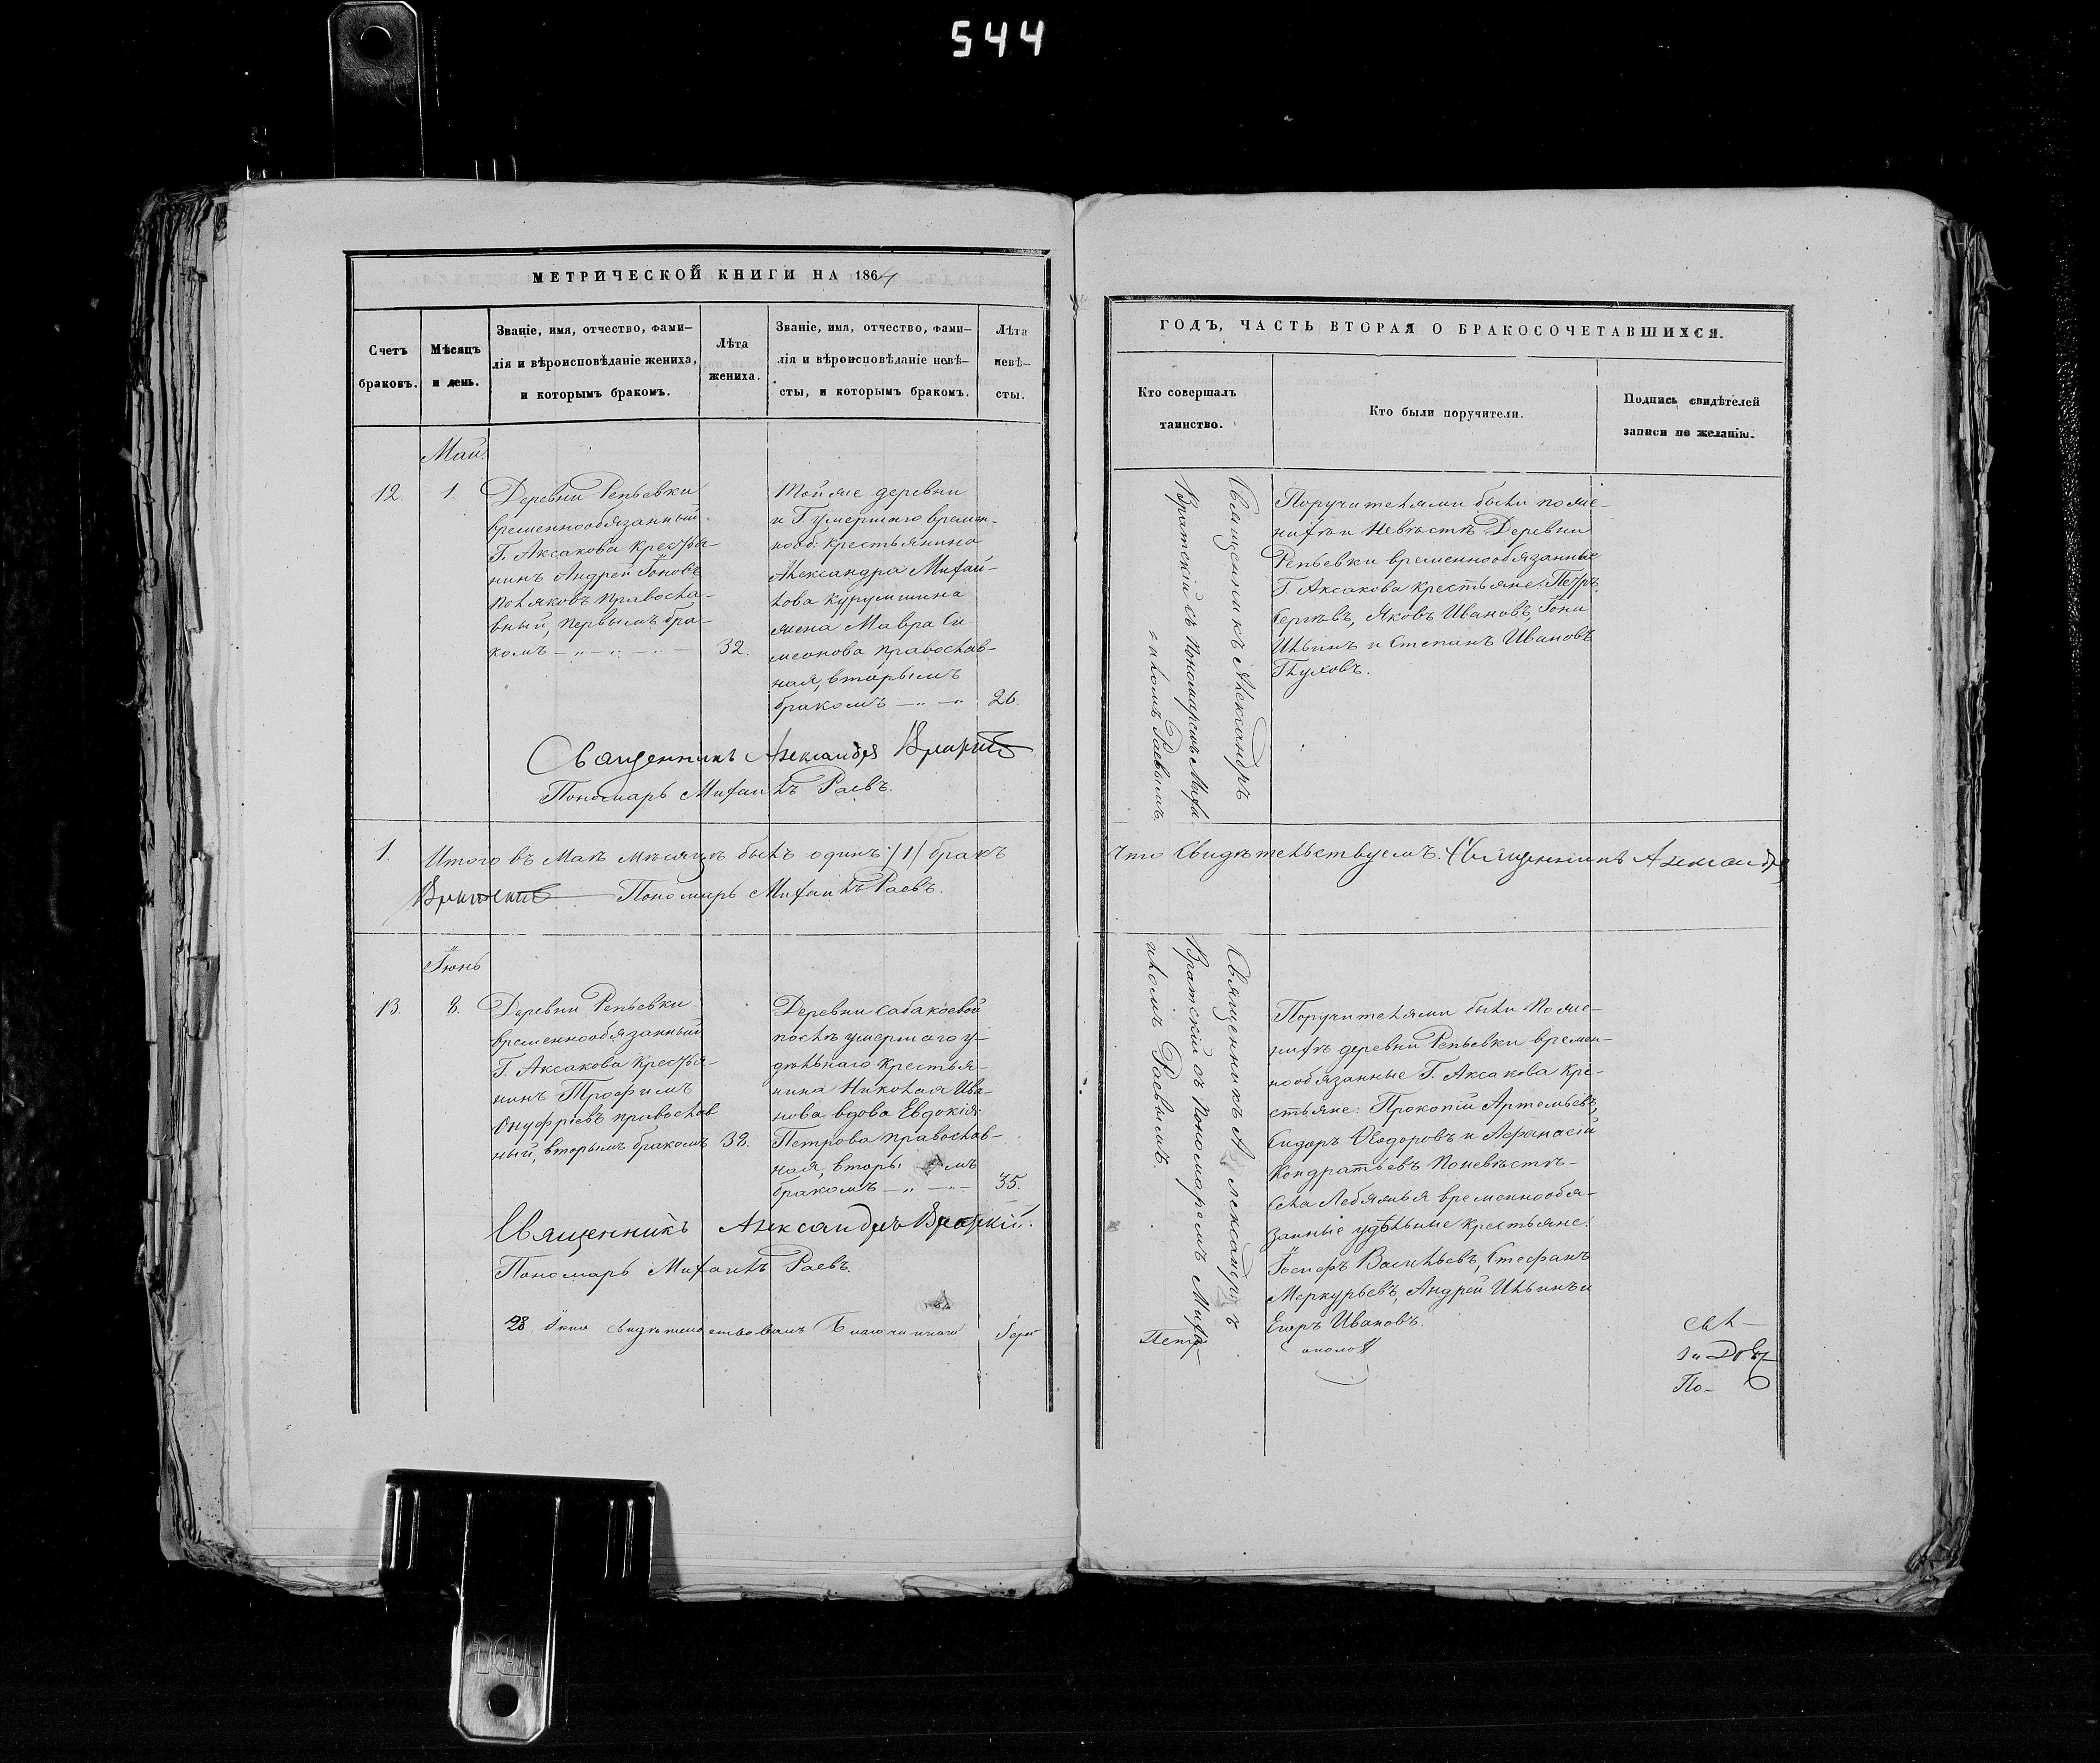 544
МЕТРИЧЕСКОЙ КНИГИ НА 1864
Счетъ браковъ.
Мѣсяцъ и день.
Званіе, имя, отчество, фами-
лія и вѣроисповѣданіе жениха,
и которымъ бракомъ.
Лѣта
жениха.
Званіе, имя, отчество, фами-
лія и вѣроисповѣданіе невѣ-
сты, и которымъ бракомъ.
Лѣта
невѣ-
сты.
Май.
12.
1.
Деревни Репьевки
временнообязанный
Г. Аксакова крестья-
нинъ Андрей Іоновъ
Поляковъ православ-
вный, первымъ бра-
комъ
32.
Той же деревни
и Г. умершаго времен-
нооб: крестьянина
Александра Михай-
лова
жена Мавра Си
меонова православ-
ная, вторымъ
бракомъ
26.
Священникъ Александръ Вратскій
Пономарь Михаилъ Раевъ.
1.
Итого въ Маѣ мѣсяцѣ былъ одинъ /1/ бракъ
Вратскій Пономарь Михаилъ Раевъ.
Іюнь
13.
8.
Деревни Репьевки
временнообязанный
Г. Аксакова крестья-
нинъ Трофимъ
Онуфріевъ православ
ный, вторымъ бракомъ
38.
Деревни Сабакаевой
послѣ умершаго у-
дѣльнаго крестья-
нина Николая Ива-
нова вдова Евдокія
Петрова православ-
ная, вторымъ
бракомъ
35.
Священникъ Александръ Вратскій.
Пономарь Михаилъ Раевъ.
28
ГОДЪ, ЧАСТЬ ВТОРАЯ О БРАКОСОЧЕТАВШИХСЯ.
Кто совершалъ
таинство.
Кто были поручители.
Подпись свидѣтелей
записи по желанію.
Священникъ Александръ
Вратскій съ пономаремъ Миха-
иломъ Раевымъ.
Поручителями были по же-
нихѣ и невѣстѣ Деревни
Репьевки временнообязанные
Г. Аксакова крестьяне: Петръ
Сергѣевъ, Яковъ Ивановъ, Іона
Ильинъ и Степанъ Ивановъ
Глуховъ.
что свидѣтельствуемъ. Священникъ Александръ
Священникъ Александръ
Вратскій съ пономаремъ Миха-
иломъ Раевымъ.
Поручителями были по же-
нихѣ деревни Репьевки времен-
нообязанные Г. Аксакова кре-
стьяне: Прокопій Артемьевъ,
Сидоръ Ѳеодоровъ и Афанасій
Кондратьевъ по невѣстѣ-
села Лебяжья временнообя-
занные удѣльные крестьяне:
Іосифъ Васильевъ, Стефанъ
Меркурьевъ, Андрей Ильинъ и
Егоръ Ивановъ.
По-